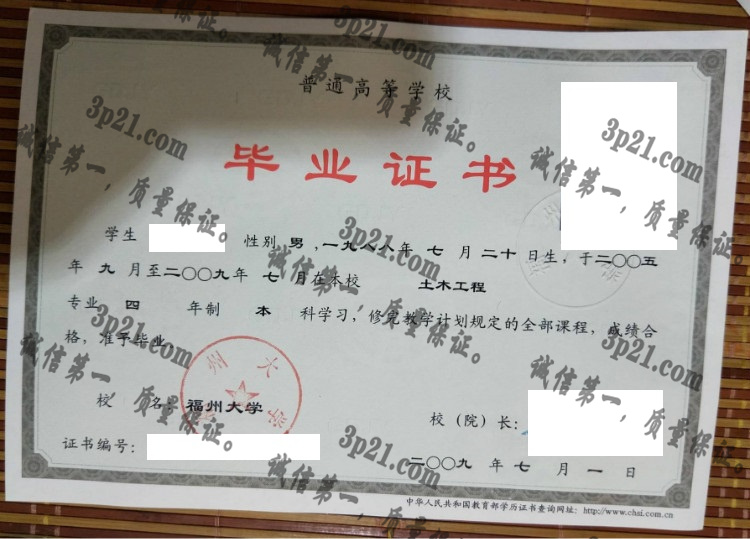 普通高等学校
毕业证书
学生 性别 男 ,一九八八年 七 月 二十日生，于二〇〇五
年 九 月至二〇〇九年 七 月在本校 土木工程
专业 四 年制 本 科学习，修完教学计划规定的全部课程，成绩合
格，准予毕业。
校 名：福州大学
校（院）长：
证书编号：
二〇〇九 年 七 月 一 日
中华人民共和国教育部学历证书查询网址：http://www.chsi.com.cn
州大学
3p21.com
诚信第一，质量保证。
3p21.com
诚信第一，质量保证。
3p21.com
诚信第一，质量保证。
3p21.com
诚信第一，质量保证。
3p21.com
诚信第一，质量保证。
3p21.com
诚信第一，质量保证。
3p21.com
诚信第一，质量保证。